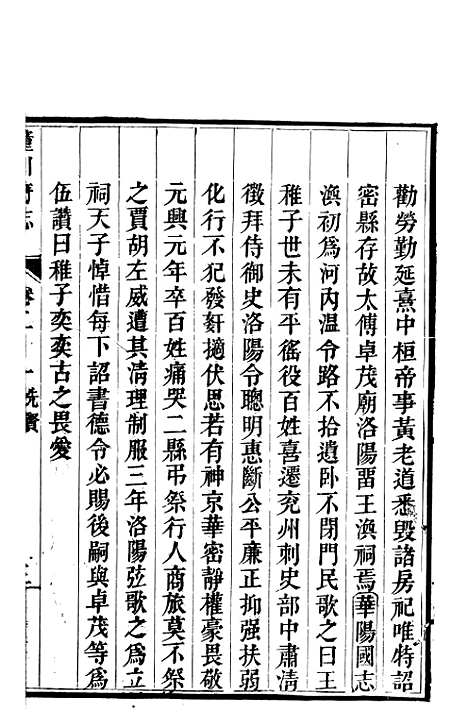 勸勞勤延熹中桓帝事黃老道悉毀諸房祀唯特詔
密縣存故太傅卓茂廟洛陽畱王渙祠焉華陽國志
渙初為河內溫令路不拾遺卧不閉門民歌之曰王
稚子世未有平徭役百姓喜遷兖州刺史部中肅清
徵拜侍御史洛陽令聰明惠斷公平廉正抑强扶弱
化行不犯發奸擿伏思若有神京華密靜權豪畏敬
元興元年卒百姓痛哭二縣弔祭行人商旅莫不祭
之賈胡左威遭其清理制服三年洛陽弦歌之為立
祠天子悼惜每下詔書德令必賜後嗣與卓茂等為
伍讚曰稚子奕奕古之畏愛
潼川府志
卷二十一